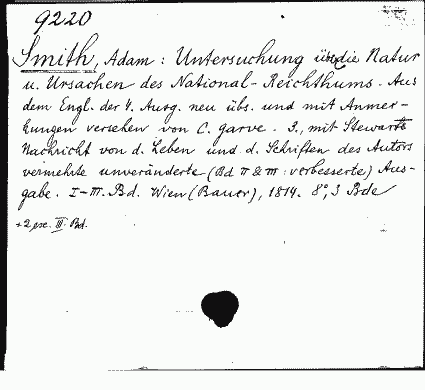 9220
Smith, Adam: Untersuchung über die Natur
u. Ursachen des National-Reichthums. Aus
dem Engl. der 4. Ausg. neu übs. und mit Anmer-
kungen versehen von C. Garve. 3., mit Stewarts
Nachricht von d. Leben und d. Schriften des Autors
vermehrte unveränderte (Bd II & III: verbesserte) Aus-
gabe. I-III. Bd. Wien (Bauer), 1814. 8°, 3 Bde
+2 ex. III. Bd.